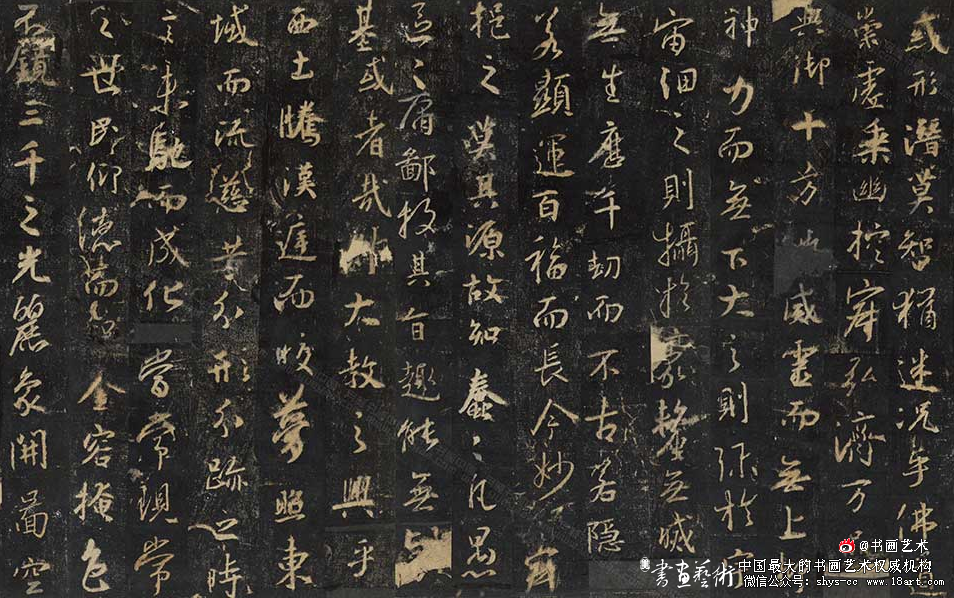 或形潛莫智猶迷況乎佛道
崇虛乘幽控寂弘濟万
典御十方威靈而無上
神力而無下大之則彌於宇
宙細之則攝於毫釐無滅
無生歷千劫而不古若隱
若顯運百福而長今妙寂
挹之莫其源故知蠢々凡愚
區々庸鄙投其旨趣能無
基或者哉大教之興乎
西土騰漢庭而皎夢照東
域而流慈昔分形分跡之時
言未馳而成化當常現常
之世民仰德而知金容掩色
不鏡三千之光麗象開圖空
@书画艺术
書畫藝術
中国最大的书画艺术权威机构
微信公众号: shys-cc www.18art.com